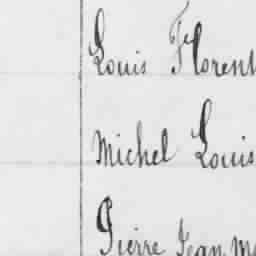 Louis Florent
Michel Louis
Pierre Jean Ma